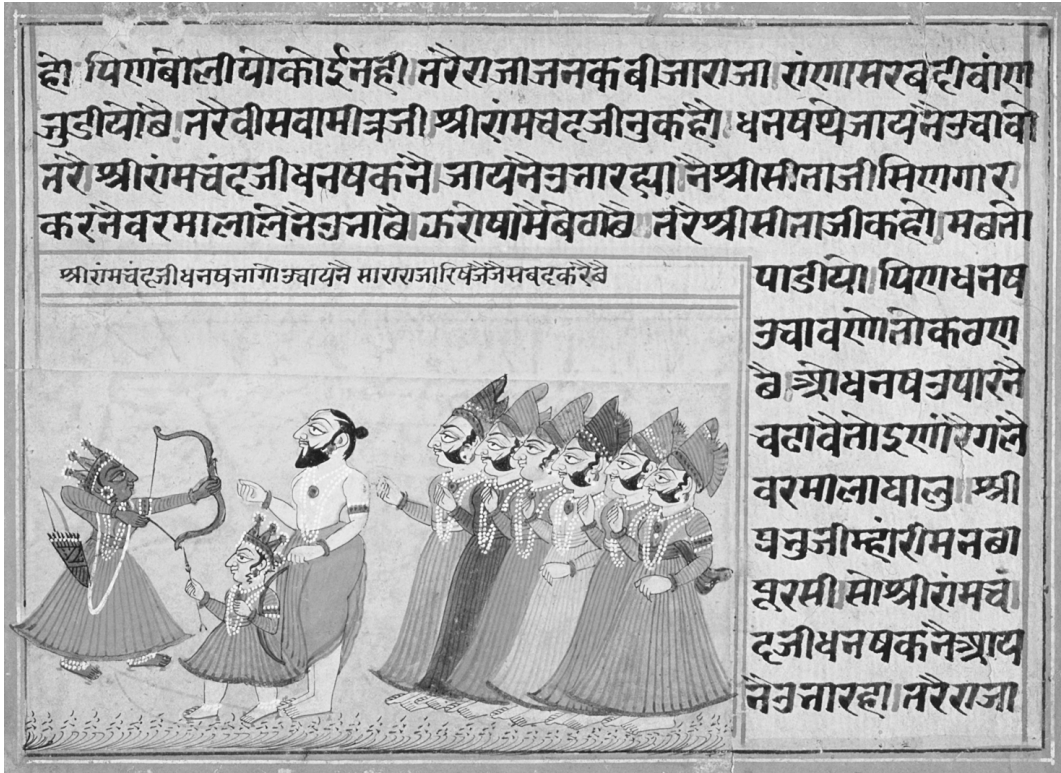 हो पिणबोलीयोकोईनही तरैराजाजनकबीजाराजा रांणासरबदीवांण
जुडीयोछै तरैवीसवामीत्रजी श्रीरांमचदजीनुकहै धनषथेजायनैउचावो
तरै श्रीरांमचंदजीधनषकनै जायनैउभारह्या नैश्रीसीताजीसिणगार
करनैवरमालालेनैउभाछै झरोषामैबेठाछै तरैश्रीसीताजीकहो मबतो
श्रीरांमचंदजीधनषभागोउचायनै साराराजारिषजैजैसबदकरैछै
पाडीयो पिणधनष
उचावणोतोकठण
छै ओधनषउपारनै
चढावैतोइणारैगलै
वरमालाघालु श्री
प्रभुजीम्हांरीमनछा
पूरसी सोश्रीरांमचं
दजीधनषकनैआय
नैउभारहा तरैराजा